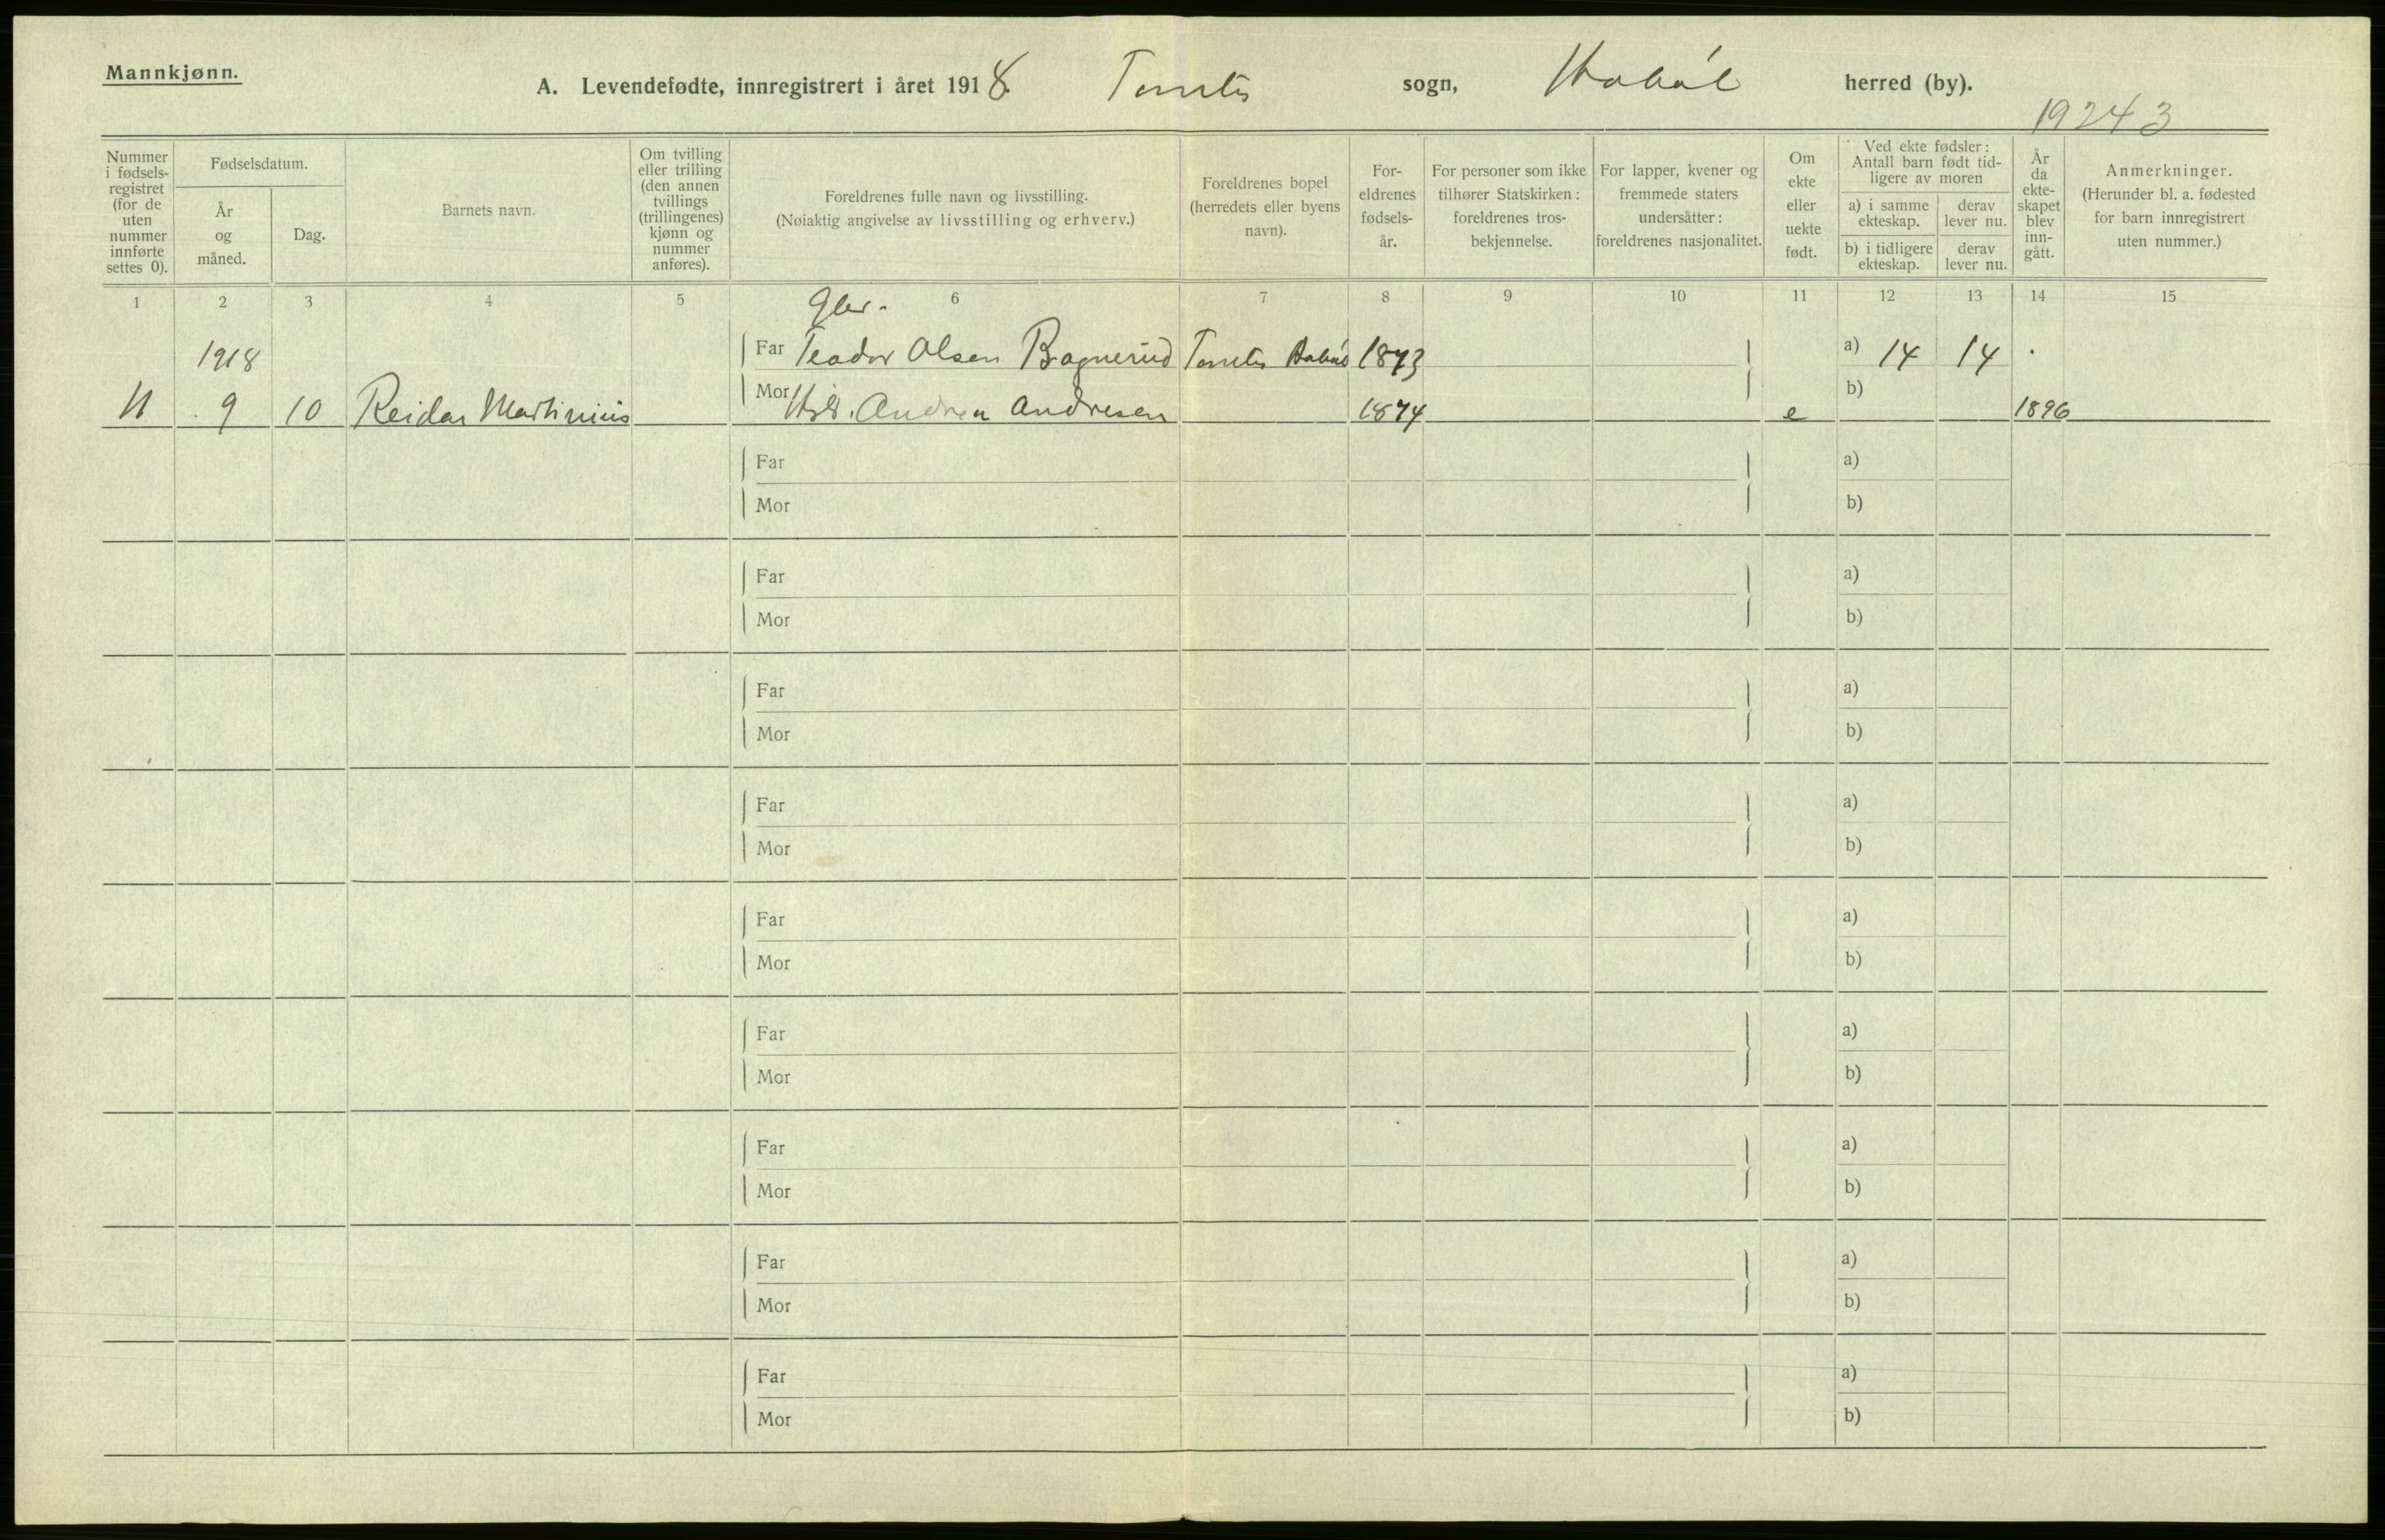 Mannkjønn.
A. Levendefødte, innregistrert i året 1918. Tomter sogn, Hobøl herred (by).
19243
Nummer i fødsels-registret (for de uten nummer innførte settes 0).
Fødselsdatum.
År og måned.
Dag.
Barnets navn.
Om tvilling eller trilling (den annen tvillings (trillingenes) kjønn og nummer anføres).
Foreldrenes fulle navn og livsstilling.
(Nøiaktig angivelse av livsstilling og erhverv.)
Foreldrenes bopel (herredets eller byens navn).
For-eldrenes fødsels-år.
For personer som ikke tilhører Statskirken: foreldrenes tros-bekjennelse.
For lapper, kvener og fremmede staters undersåtter: foreldrenes nasjonalitet.
Om ekte eller uekte født.
Ved ekte fødsler: Antall barn født tid-ligere av moren
a) i samme ekteskap.
derav lever nu.
b) i tidligere ekteskap.
derav lever nu.
År da ekte-skapet blev inn-gått.
Anmerkninger.
(Herunder bl. a. fødested for barn innregistrert uten nummer.)
1 2 3 4 5 6 7 8 9 10 11 12 13 14 15
1918
Far Teodor Olsen Bognerud Tomter Hobøl 1873 a) 14 14
11 9 10 Reidar Martinius Mor Andrea Andresen 1874 e b) 1896
Far a)
Mor b)
Far a)
Mor b)
Far a)
Mor b)
Far a)
Mor b)
Far a)
Mor b)
Far a)
Mor b)
Far a)
Mor b)
Far a)
Mor b)
Far a)
Mor b)